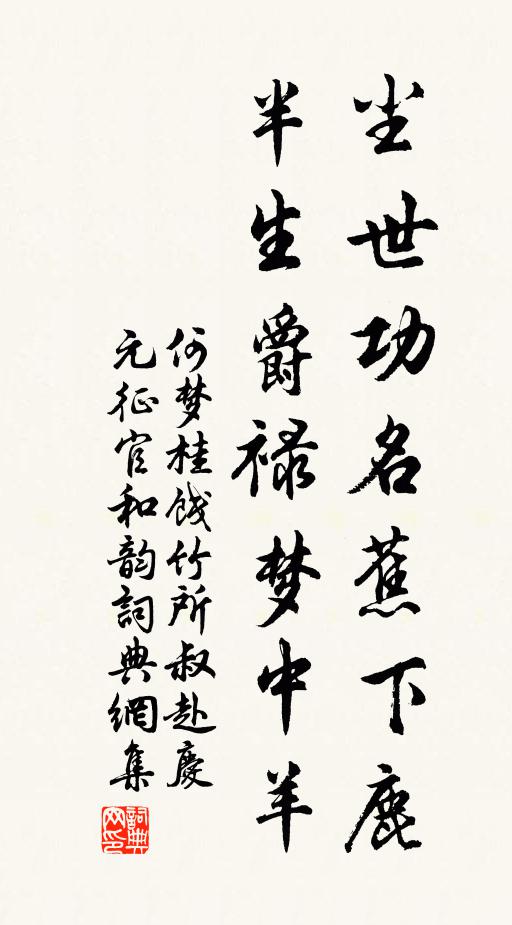 尘世功名蕉下鹿
半生爵禄梦中羊
何梦桂饯竹所叔赴庆
元征官和韵詞典網集
詞典
网印